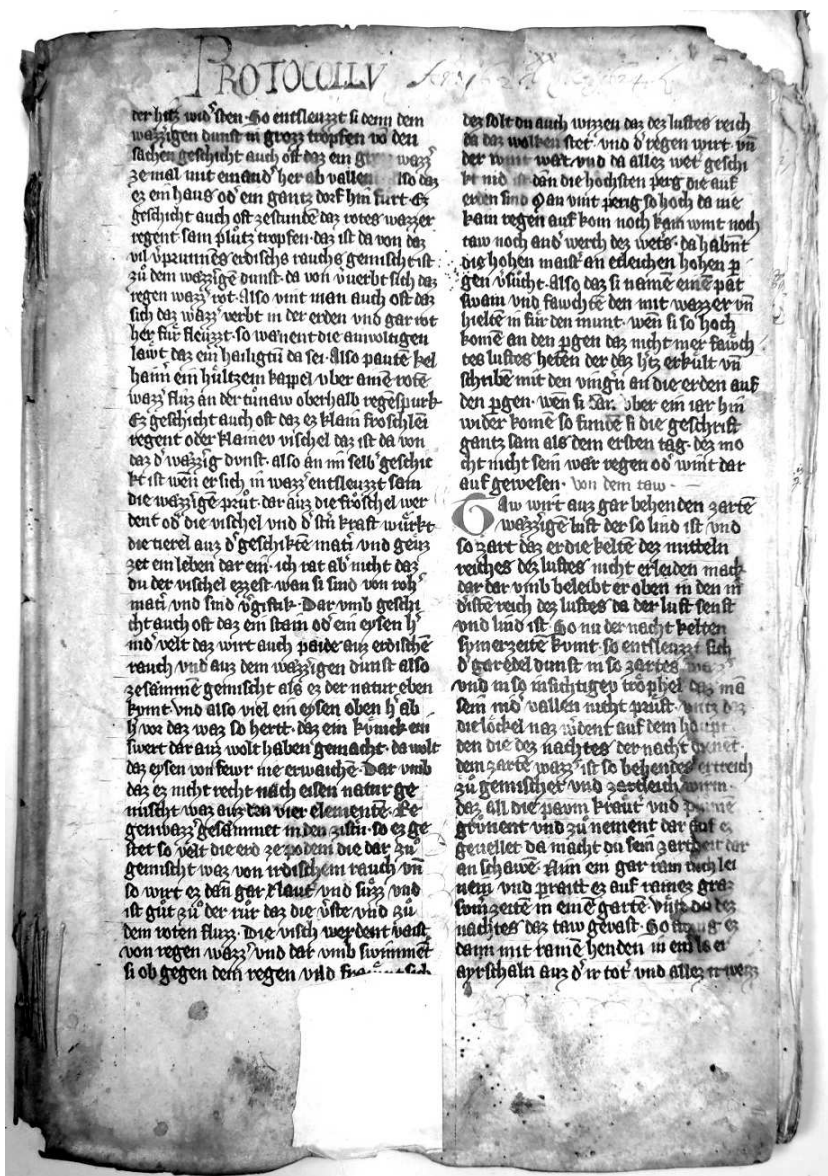 PROTOCOLLV
der hitz wid'sten. So entsleuzzt si denn dem
wazzigen dunst in grozz tropfen von den
sachen geschicht auch oft daz ein wazz'
ze mal mit einand' her ab vallen also daz
ez ein haus od' ein gantz dorf hin furt. Ez
geschicht auch oft zestunden daz rotes wazzer
regent. sam pluͦtz tropfen. daz ist da von daz
vil v'prunnes erdischs rauchs gemischt ist
zuͦ dem wazzigen dunst. da von v'uerbt sich daz
regen wazz' rot. Also vint man auch oft daz
sich daz wazz' verbt in der erden vnd gar rot
her fuͤr fleuzzt. so waͤnent die ainvoltigen
laͤwt daz ein hailigtuͦ da sei. Also pautē kel
haim' ein huͤltzein kappel vber ainē rotē
wazz' fluzz an der tuͦnaw oberhalb regēspurk.
Ez geschicht auch oft daz ez klain froschleī
regent oder klainev vischel daz ist da von
daz d' wazzig dvnst. also an im selb' geschic
kt ist wen er sich in wazz' entsleuzzt sam
die wazzigen pruͦt. dar auz die froͤschel wer
dent od' die vischel vnd d' stn̄ kraft wuͤrkt
die tierel auz d' geschiktē mati' vnd geuͤz
zet ein leben dar ein. ich rat ab' nicht daz
du der vischel ezzest. wan si sind von roh'
mati' vnd sind v'giftik. Dar vmb geschi
cht auch oft daz ein stain od' ein eysen h'
nid' velt daz wirt auch paide auz erdischē
rauch vnd auz dem wazzigen dunst also
zesammē gemischt als ez der natur eben
kvmt. vnd also viel ein eysen oben h' ab
h' vor daz waz so hertt. daz ein kuͤnick ein
swert dar auz wolt haben gemacht. da wolt
daz eysen von fewr nie erwaichē. Dar vmb
daz ez nicht recht nach eisen natur ge
mischt waz auz den vier elementē. Re
genwazz' gesammet in den zistn̄. so ez ge
stet so velt die erd ze podem die dar zuͦ
gemischt waz von irdischem rauch vn̄
so wirt ez dan̄ gar klaut' vnd suͤzz vnd
ist guͦt zuͦ der ruͦr daz die v'ste vnd zuͦ
dem roten fluzz. Die visch werdent vaist
von regen wazz' vnd dar vmb swimmēt
si ob gegen dem regen vnd
dez solt du auch wizzen daz dez luftes reich
da daz wolken stet. vnd d' regen wirt. vn̄
der wint waͤt. vnd da allez wet' geschi
kt nid' ist dan die hochsten perg die auf
erden sind. Man vint perig so hoch da nie
kain regen auf kom noch kain wint noch
taw noch and' werch dez wet's. da habn̄t
die hohen maist' an etleichen hohen p'
gen v'sucht. Also daz si namen einē pat
swam vnd fawchtē den mit wazzer vn̄
hieltē in fuͤr den munt. wen si so hoch
komē an den p'gen daz nicht mer fawch
tes luftes hetē der daz h'tz erkuͤlt vn̄
schribē mit den ving'n an die erden auf
den p'gen. wen si dar. vber ein iar hin
wider komē so fundē si die geschrift
gantz sam als dem ersten tag. dez mo
cht nicht sein waͤr regen od' wint dar
auf gewesen. von dem taw.
Taw wirt auz gar behenden zartē
wazzigē luft der so lind ist vnd
so zart daz er die keltē dez mitteln
reiches dez luftes nicht erleiden mack
dar dar vmb beleibt er oben in den ni
d'istē reich dez luftes da der luft senft
vnd lind ist. So nu der nacht kelten
svmerzeitē kvmt. so entsleuzzt sich
d' gar edel dunst in so zartes
vnd in so insichtigev troͤphel daz mā
sein nid' vallen nicht pruͤft.
die loͤckel naz w'dent auf dem haupt
den die dez nachtes der nacht
dem zartē wazz' ist so behendes ertreich
zuͦ gemischet vnd zartleich
daz all die paum kraut' vnd
gruͤnent vnd zuͦ nement dar auf ez
geuellet da macht du sein zartheit dar
an schawē. Nim ein gar rain tuchlei
nein vnd praitt ez auf raines gras
som'zeitē in einē garten.
nachtes daz taw gevast. So ez
dann mit rainē henden in
ayrschaln auz d' ir tot' vnd allez ir weizz